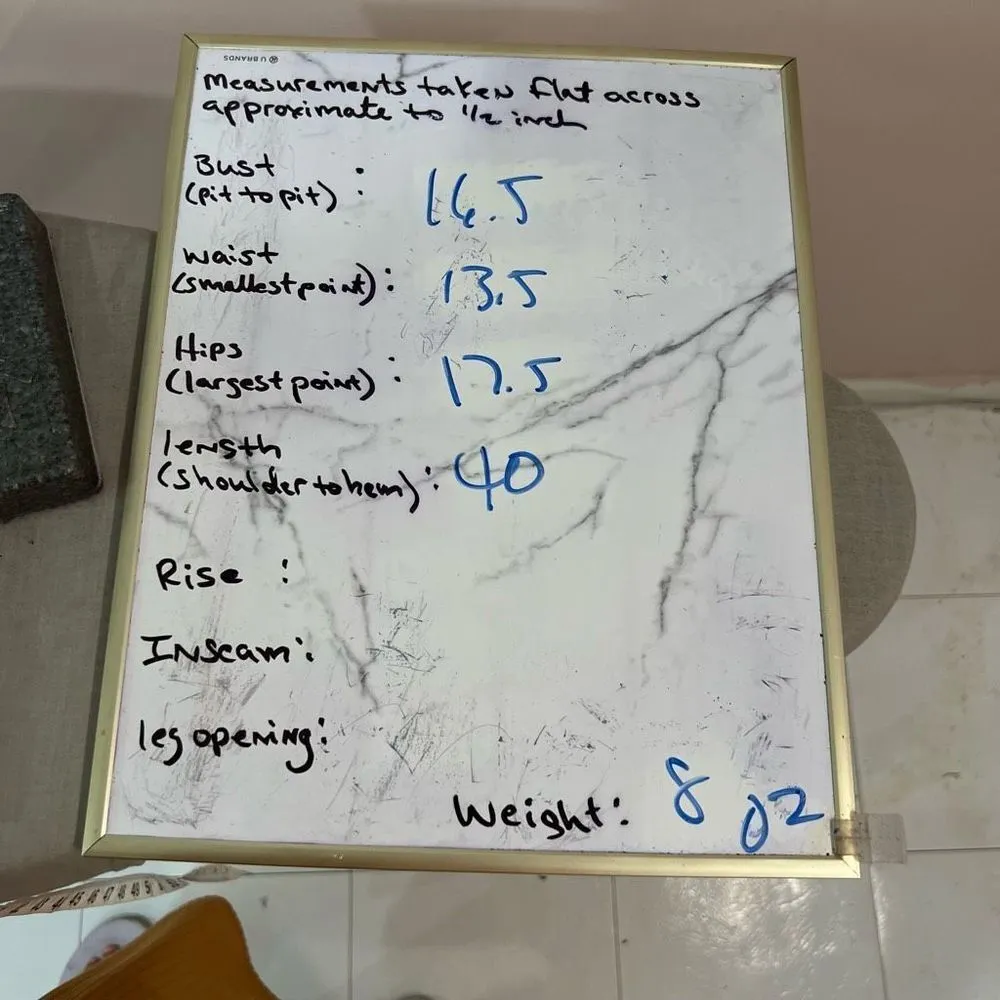 U BRANDS
Measurements taken flat across
approximate to 1/2 inch
Bust :
(pit to pit)
16.5
Waist
(smallest point): 13.5
Hips
(largest point): 17.5
length
(shoulder to hem): 40
Rise :
Inseam:
leg opening:
Weight: 8 oz